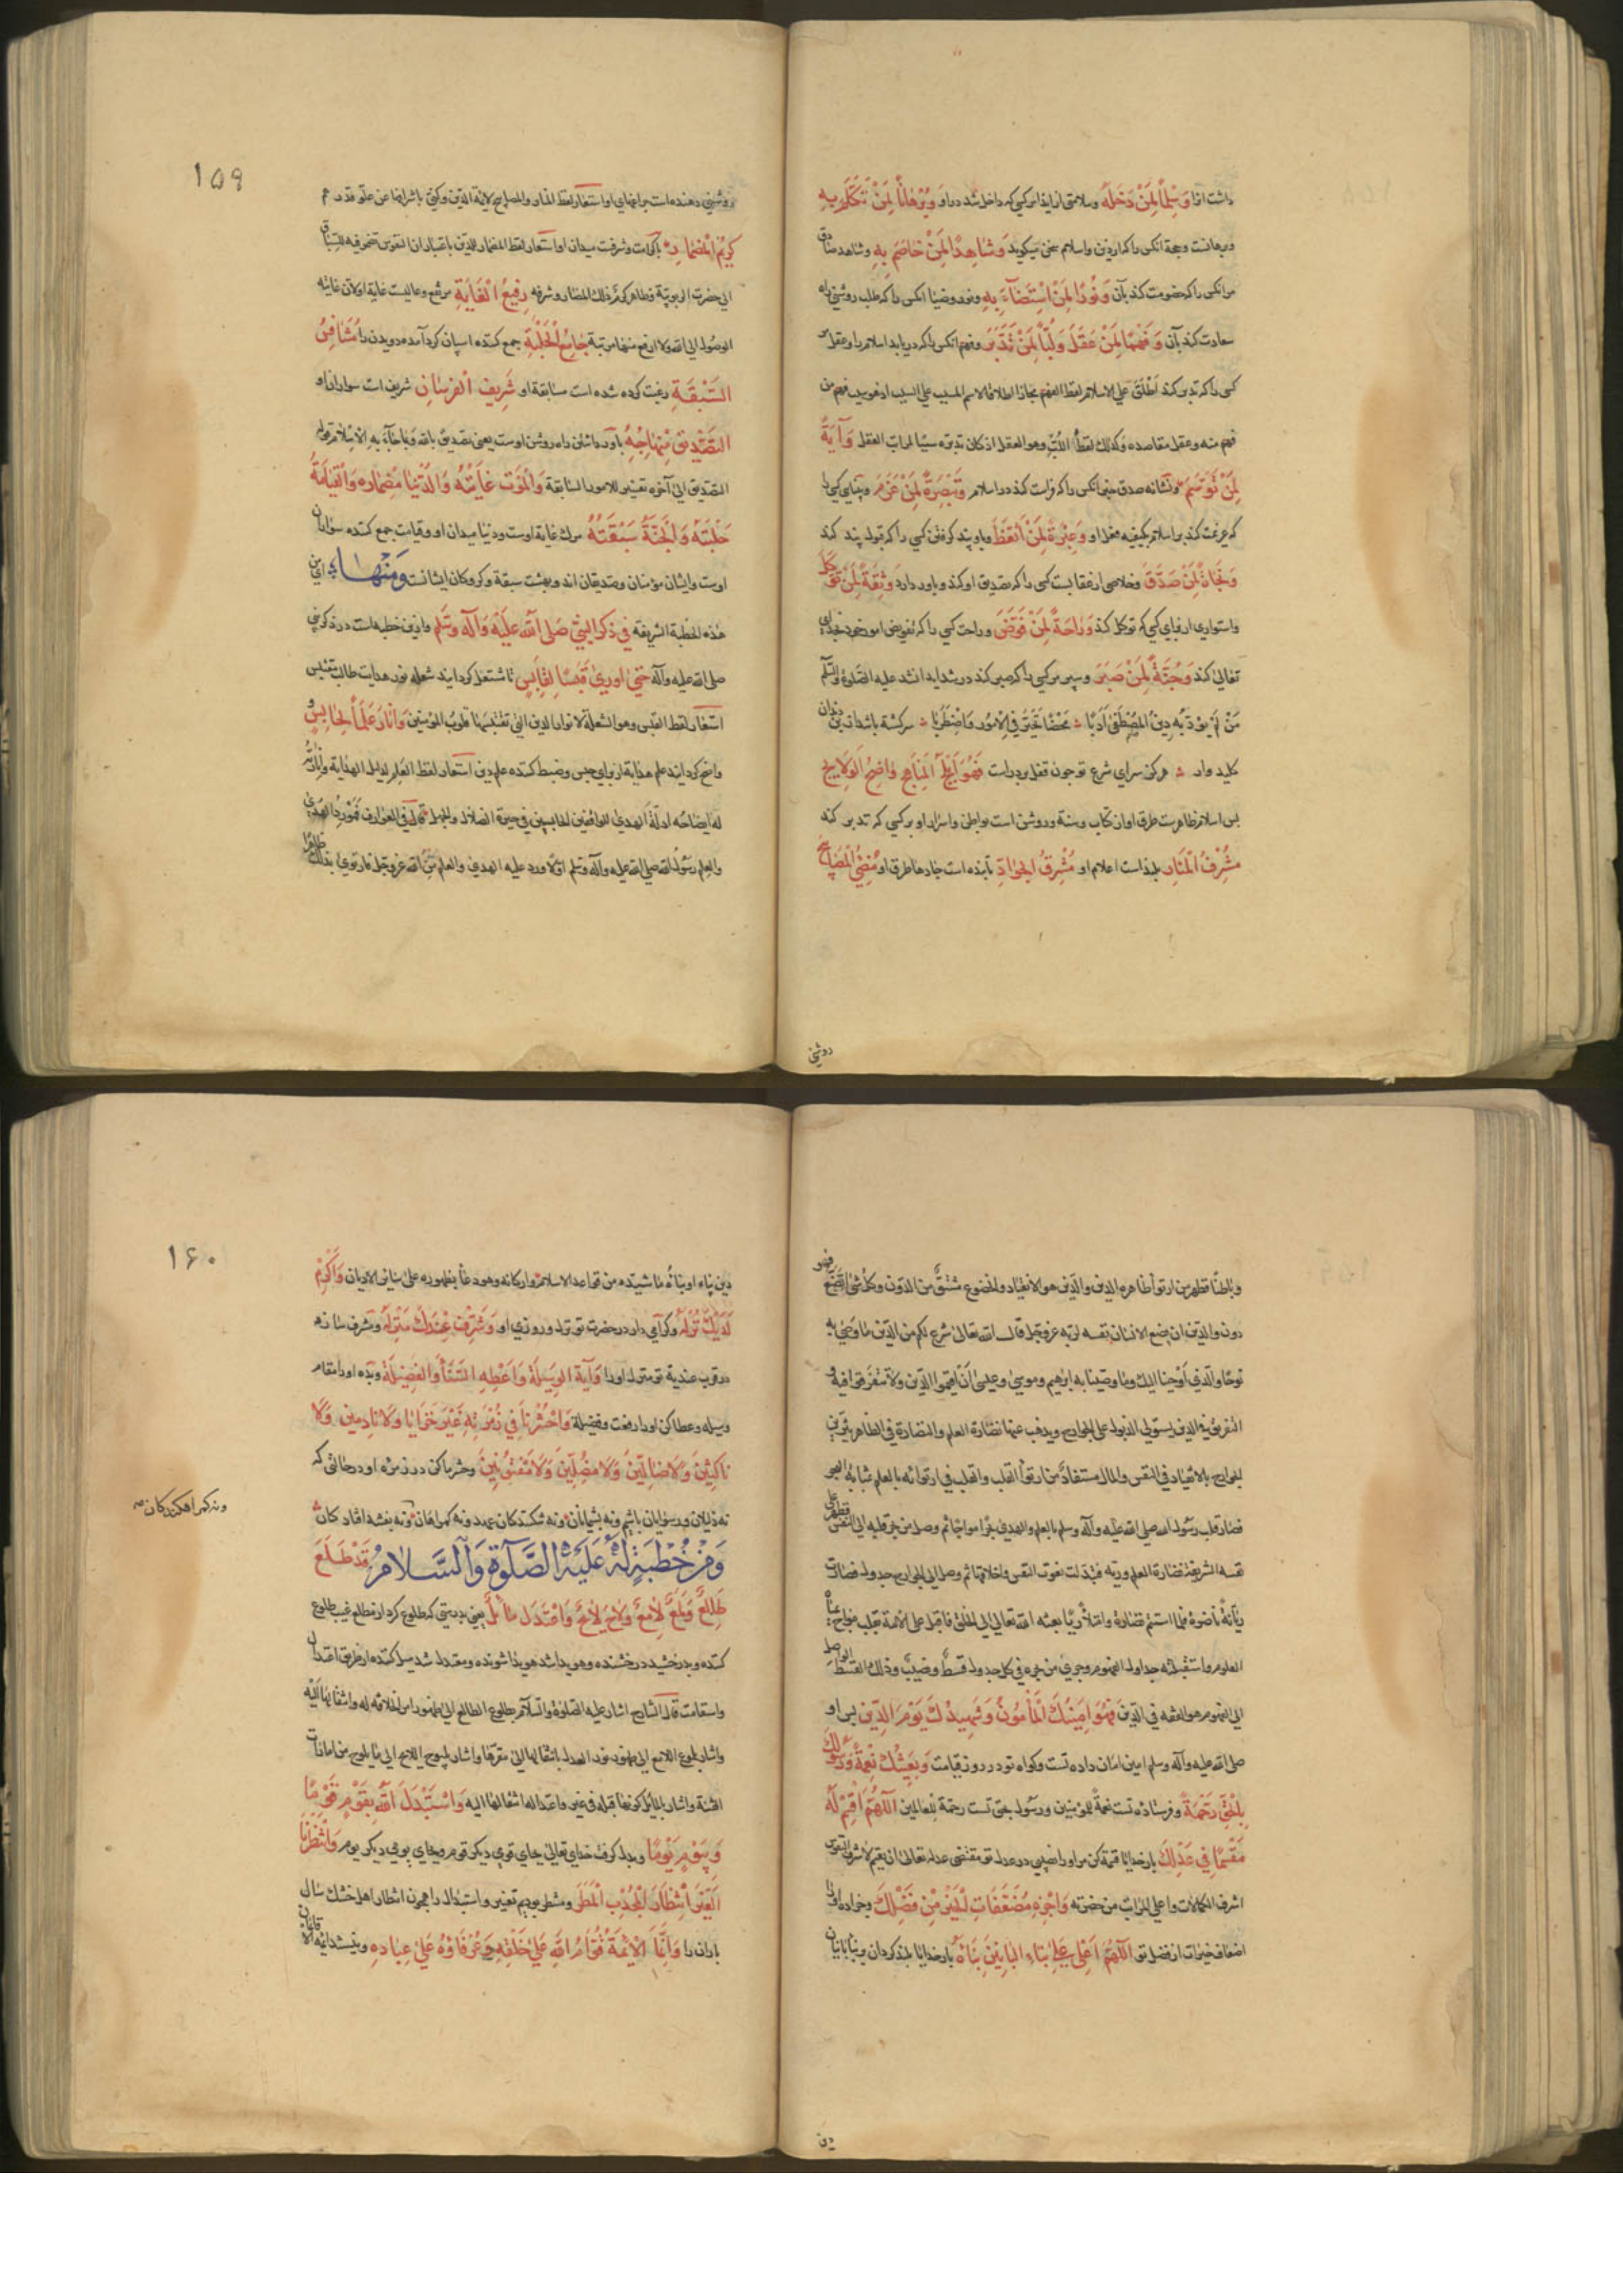 داشت انرا وَسِلْمًا لِمَنْ دَخَلَهُ وسلامتی از ایذا مر کسی که داخل شد در او وَبُرْهَانًا لِمَنْ تَكَلَّمَ بِهِ
وبرهانست وحجة انکس را که از دین واسلام سخن میکوید وَشَاهِدًا لِمَنْ خَاصَمَ بِهِ وشاهد صادق
مر انکس را که خصومت کند بآن وَنُورًا لِمَنْ اسْتَضَآءَ بِهِ ونور وضیا انکس را که طلب روشنی راه
سعادت کند بآن وَفَهْمًا لِمَنْ عَقَلَ وَلُبًّا لِمَنْ تَدَبَّرَ وفهم انکس را که دریابد اسلام را وعقل
کسی را که تدبر کند اَطْلَقَ علی الاسلام لفظ الفهم مجازا اطلاقا لاسم المسبب علی السبب اذ هو سبب فهم من
فهم منه وعقل مقاصده وکذلك لفظ اللُّب وهو العقل اذ کان تدبره سببا لمراتب العقل وَآيَةً
لِمَنْ تَوَسَّمَ ونشانه صدق مر انکس را که فراست کند در اسلام وَتَبْصِرَةً لِمَنْ عَزَمَ وبینایی کسی را
که عزیمت کند بر اسلام بکیفیه فعل او وَعِبْرَةً لِمَنْ اتَّعَظَ وپند کرفتن کسی را که قبول پند کند
وَنَجَاةً لِمَنْ صَدَّقَ وخلاصی از عقابست کسی را که تصدیق او کند وباور دارد وَثِقَةً لِمَنْ تَوَكَّلَ
واستواری از برای کسی که توکل کند وَرَاحَةً لِمَنْ فَوَّضَ وراحت کسی را که تفویض امور خود بخدای
تعالی کند وَجُنَّةً لِمَنْ صَبَرَ وسپر مر کسی را که صبر کند در شداید انشد علیه الصلوة والسلم
مَنْ لَمْ يُؤَدِّبْهُ دِينُ الْمُصْطَفَى اَدَبًا مَحْضًا تَحَيَّرَ فِي الْاُمُورِ وَاضْطَرَبَا سرکشته باشد از بن دندان
کلید وار هر کز سرای شرع تو چون قفل بر درست فَهُوَ اَبْلَجُ الْمَنَاهِجِ وَاضِحُ الْوَلَايِجِ
پس اسلام ظاهرست طرق او از کتاب وسنة وروشن است بواطن واسرار او بر کسی که تدبر کند
مُشْرِفُ الْمَنَارِ بلند است اعلام او مُشْرِقُ الْجَوَادِّ تابنده است جادها طرق او مُضِيُّ الْمَصَابِيحِ
روشنی
۱۵۹
روشنی دهنده است چراغهای او استعار لفظ المنار والمصابیح لائمة الدین وکنی باشرافها عن علو قدرهم
كَرِيْمُ الْمِضْمَارِ باکرامت وشرفست میدان او استعار لفظ المضمار للدین باعتبار ان النفوس تضمر فیه للسباق
الی حضرت الربوبیة وظاهر کرم ذلك المضمار وشرفه رَفِيعُ الْغَايَةِ مرتفع وعالیست غایة او لان غایته
الوصول الی الله ولا ارفع منها مرتبة جَامِعُ الْحَلْبَةِ جمع کننده اسپان کرد آمده دویدن را مُتَنَافِسُ
السَّبْقَةِ رغبت کرده شده است سابقة او شَرِيفُ الْفُرْسَانِ شریف است سواران او
التَّصْدِيقُ مِنْهَاجُهُ باور داشتن راه روشن اوست یعنی تصدیق بالله وبما جاء به الاسلام قوله
التصدیق الی آخره تفسیر للامور السابقة وَالْمَوْتُ غَايَتُهُ وَالدُّنْيَا مِضْمَارُهُ وَالْقِيَامَةُ
حَلْبَتُهُ وَالْجَنَّةُ سَبْقَتُهُ مرك غایة اوست ودنیا میدان او وقیامت جمع کننده سواران
اوست وایشان مؤمنان وصدیقان اند وبهشت سبقة وکروکان ایشانست وَمِنْهَا ای من
هذه الخطبة الشریفة فِي ذِكْرِ النَّبِيِّ صَلَّى اللهُ عَلَيْهِ وَآلِهِ وَسَلَّمَ وازین خطبه است در ذکر نبی
صلی الله علیه وآله حَتَّى اَوْرَى قَبَسًا لِقَابِسٍ تا مشتعل کردانید شعله نور هدایت طالب مقتبس
استعار لفظ القبس وهو الشعلة لانوار الدین التی تقتبسها قلوب المؤمنین وَاَنَارَ عَلَمًا لِحَابِسٍ و
واضح کردانید علم هدایة از برای حبس وضبط کننده علم دین استعار لفظ العلم لدلیل الهدایة وانارته
له ایضاحه ادلة الهدی للواقفین الحابسین فی حیرة الضلال والجهل قال فی العوارف فمورد الهدی
والعلم رسول الله صلی الله علیه وآله وسلم اوّلا ورد علیه الهدی والعلم من الله عز وجل فارتوی بذلك ظاهرا
وباطنًا فظهر من ارتوآ ظاهره الدین والدین هو الانقیاد والخضوع مشتقّ من الدّون وکل شیٔ اتّضع فهو
دون والدین ان یضع الانسان نفسه لربه عز وجل قال الله تعالی شرع لکم من الدین ما وصّی به
نوحًا والذی اوحینا الیك وما وصینا به ابرهیم وموسی وعیسی اَن اقیموا الدین ولا تتفرقوا فیه و
التفرق فی الدین یستولی الذبول علی الجوارح ویذهب عنها نضارة العلم والنضارة فی الظاهر بتزیین
الجوارح بالانقیاد فی النفس والمال مستفاد من ارتوآ القلب والقلب فی ارتوائه بالعلم بمثابة البحر
فصار قلب رسول الله صلی الله علیه وآله وسلم بالعلم والهدی بحرًا مواجًا ثم وصل من بحر قلبه الی النفس فظهر علی
نفسه الشریفة نضارة العلم وریّه فتبدلت نعوت النفس واخلاقها ثم وصل الی الجوارح جدول فصارت
ریّانةً ناضرةً فلما استتم نضارة وامتلأ ریًّا بعثه الله تعالی الی الخلق فاقبل علی الامة بقلب مواج بمیاه
العلوم واستقبلته جداول الفهوم وجری من بحره فی کل جدول قسطٌ ونصیبٌ وذلك القسط الواصل
الی الفهوم هو الفقه فی الدین فَهُوَ اَمِينُكَ الْمَأْمُونُ وَشَهِيدُكَ يَوْمَ الدِّينِ پس او
صلی الله علیه وآله وسلم امین امان داده تست وکواه تو در روز قیامت وَبَعِيثُكَ نِعْمَةً وَرَسُولُكَ
بِالْحَقِّ رَحْمَةً وفرستاده تست نعمةً للمؤمنین ورسول بحق تست رحمة للعالمین اَللّٰهُمَّ اقْسِمْ لَهُ
مَقْسَمًا مِنْ عَدْلِكَ بار خدایا قسمة کن مر او را نصیبی در عدل تو مقتضی عدله تعالی ان یقسم لاشرف النفوس
اشرف الکمالات واعلی المراتب من حضرته وَاجْزِهِ مُضَعَّفَاتِ الْخَيْرِ مِنْ فَضْلِكَ وجزا ده او را
اضعاف خیرات از فضل تو اَللّٰهُمَّ اَعْلِ عَلَى بِنَاءِ الْبَانِينَ بِنَاءَهُ بار خدایا بلند کردان وبنا بانیان
دین
۱۶۰
دین بناء او بناؤه ما شیّده من قواعد الاسلام وارکانه وهو دعآ بظهوره علی سایر الادیان وَاَكْرِمْ
لَدَيْكَ نُزُلَهُ وکرامی دار در حضرت تو نزل وروزی او وَشَرِّفْ عِنْدَكَ مَنْزِلَهُ ومشرف ساز
در قرب عندیة تو منزل او را وَآتِهِ الْوَسِيلَةَ وَاَعْطِهِ السَّنَآءَ وَالْفَضِيلَةَ وبده او را مقام
وسیله وعطا کن او را رفعت وفضیلة وَاحْشُرْنَا فِي زُمْرَتِهِ غَيْرَ خَزَايَا وَلَا نَادِمِينَ وَلَا
نَاكِثِينَ وَلَا ضَالِّينَ وَلَا مُضِلِّينَ وَلَا مَفْتُونِينَ وحشر ما کن در زمره او در حالتی که
نه ذلیلان ورسوایان باشیم ونه پشیمانان ونه شکنندکان عهد ونه کمراهان ونه بفتنه افتادکان
ونه کمراه کنندکان صح
وَمِنْ خُطْبَةٍ لَهُ عَلَيْهِ الصَّلَوةُ وَالسَّلَامُ قَدْ طَلَعَ
طَالِعٌ وَلَمَعَ لَامِعٌ وَلَاحَ لَايِحٌ وَاعْتَدَلَ مَايِلٌ یعنی بدرستی که طلوع کرد از مطلع غیب طلوع
کننده وبدرخشید درخشنده وهویدا شد هویدا شونده ومعتدل شد میل کننده از طریق اعتدال
واستقامت قال الشارح اشار علیه الصلوة والسلام بطلوع الطالع الی ظهور امر الخلافة له وانتقالها الیه
واشار بلموع اللامع الی ظهور نور العدل بانتقالها الی مقرّها واشار بلوح اللایح الی ما یلوح من امارات
الفتنة واشار بالمایل کونها قبله فی غیره واعتداله انتقالها الیه وَاسْتَبْدَلَ اللهُ بِقَوْمٍ قَوْمًا
وَبِيَوْمٍ يَوْمًا وبدل کرفت خدای تعالی بجای قومی دیکر قوم وبجای یومی دیکر یوم وَانْتَظَرْنَا
الْغِيَرَ انْتِظَارَ الْمُجْدِبِ الْمَطَرَ ومنتظر بودیم تغییر واستبدال را همچون انتظار اهل خشك سال
باران را وَاِنَّمَا الْاَئِمَّةُ قُوَّامُ اللهِ عَلَى خَلْقِهِ وَعُرَفَاؤُهُ عَلَى عِبَادِهِ ونیستند ائمه الا قایمان